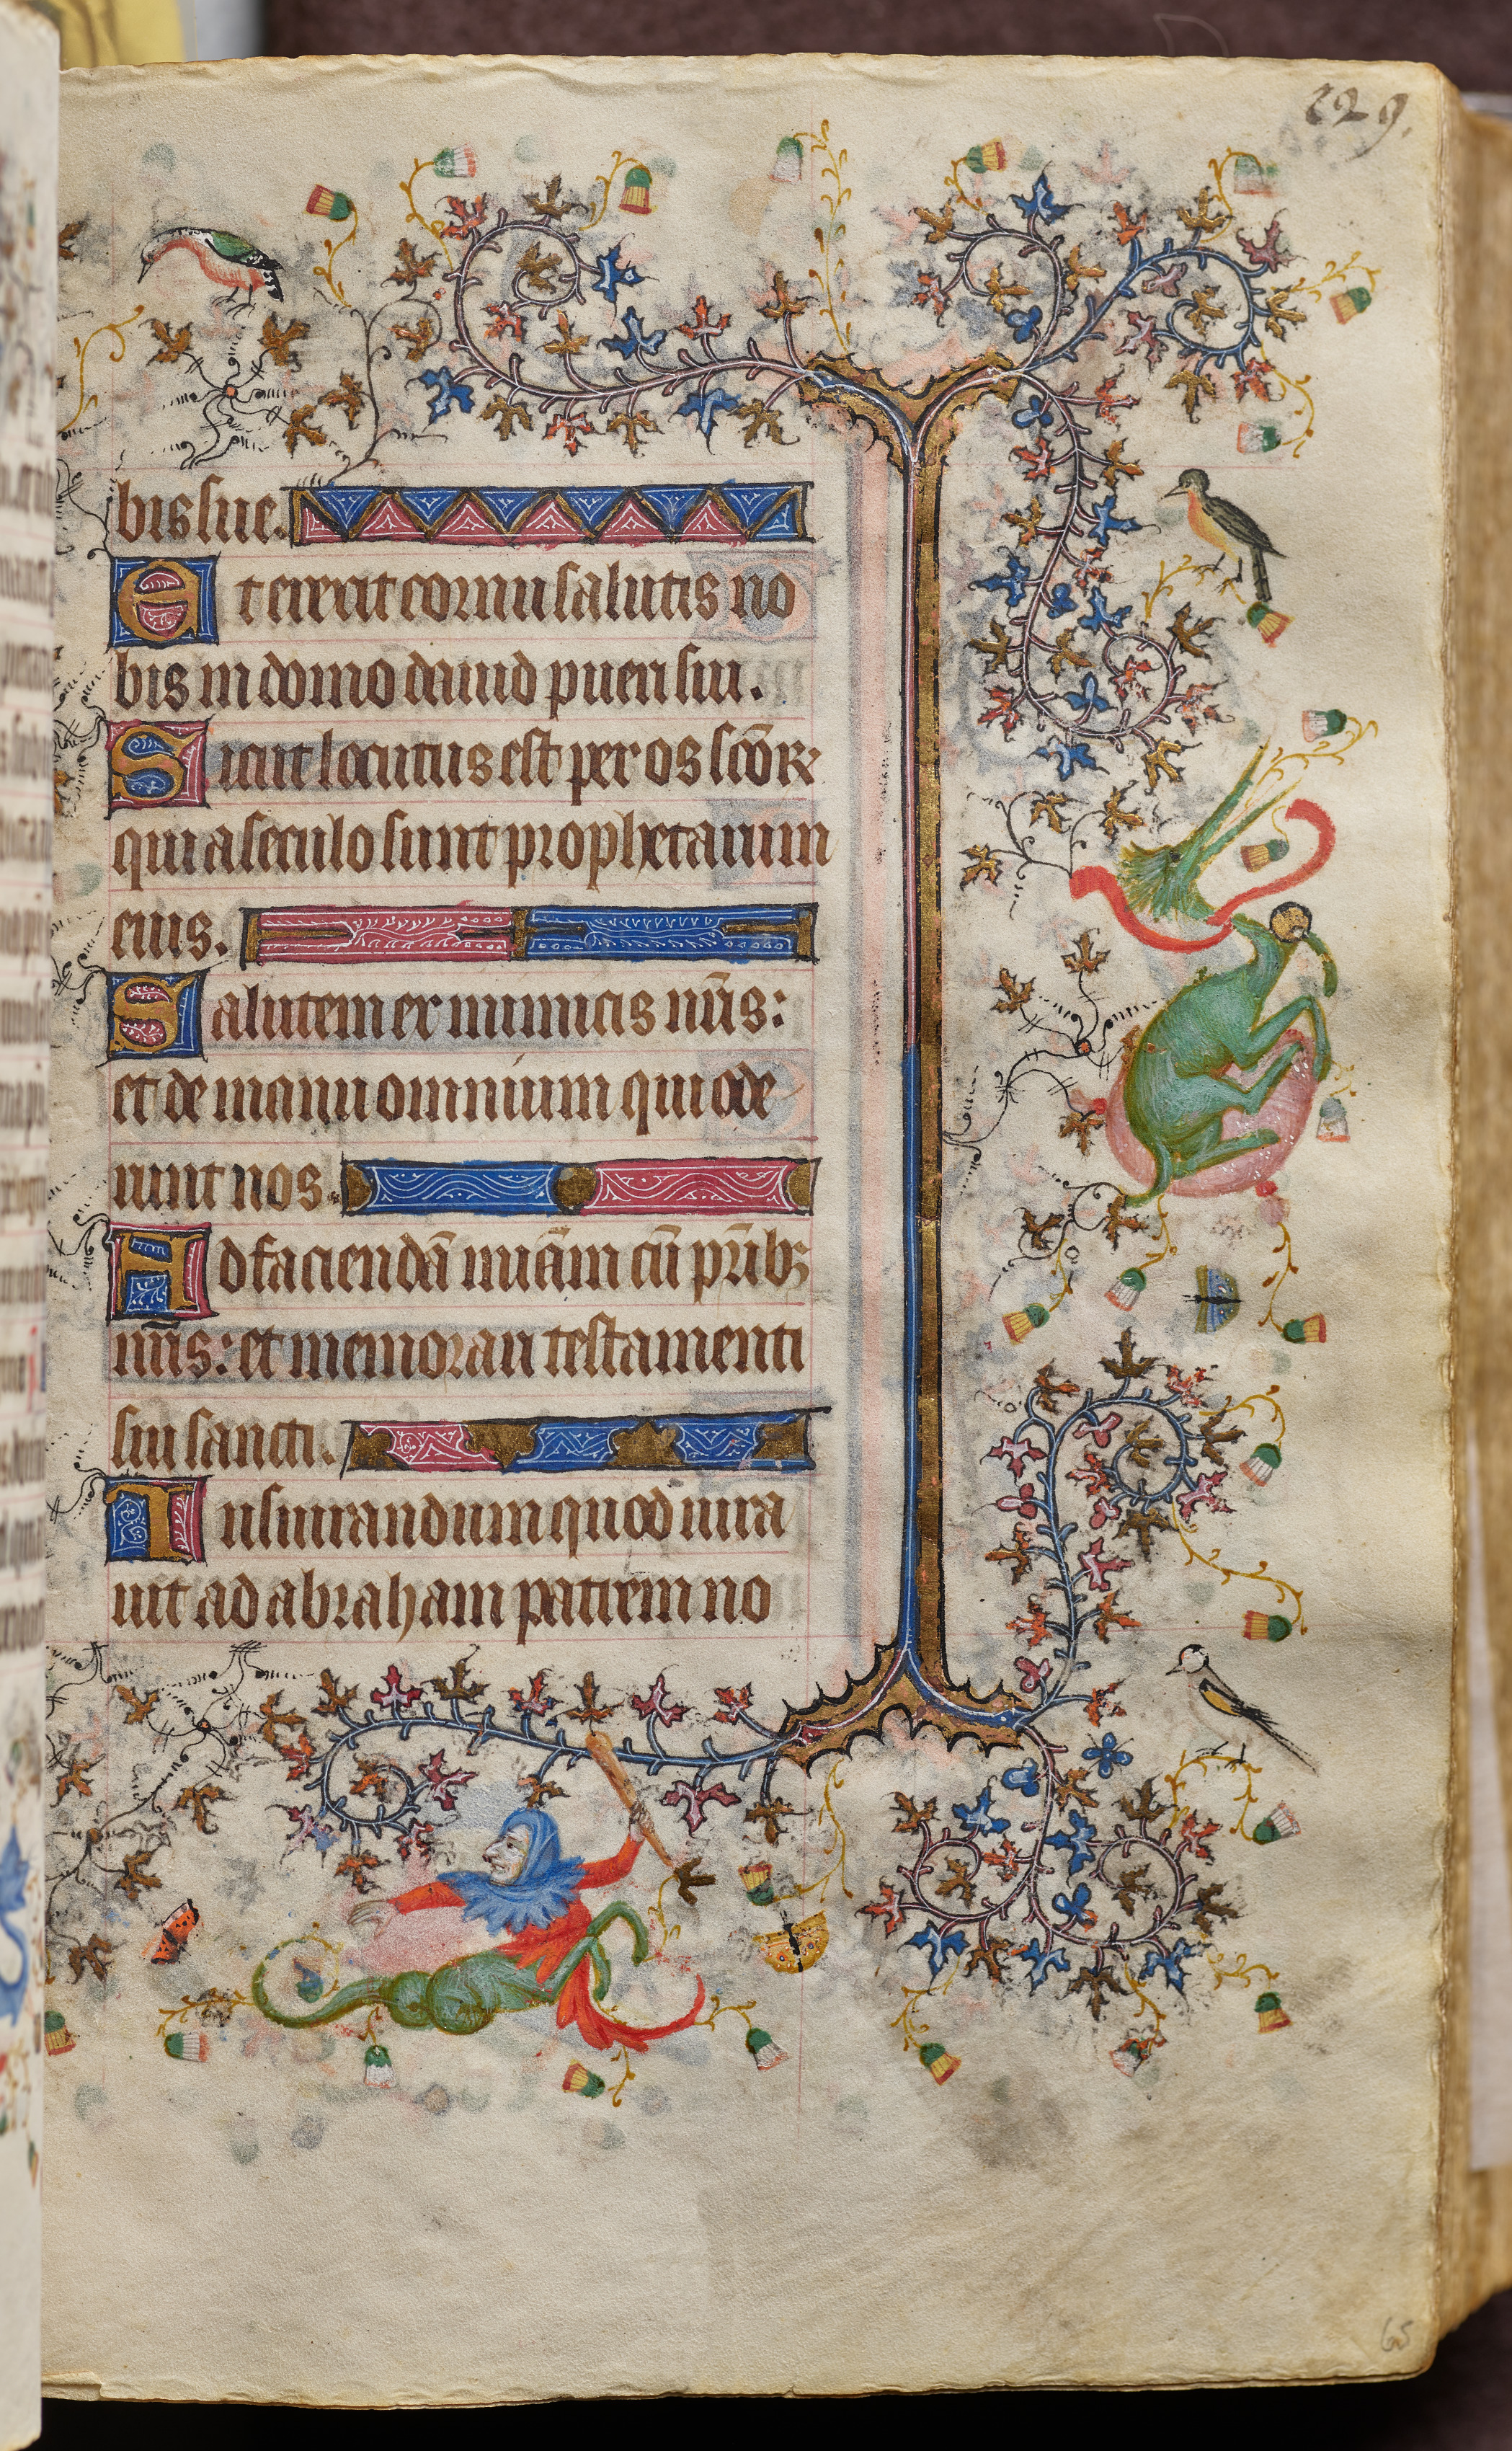 129.
bis sue.
Et erexit cornu salutis no
bis in domo dauid pueri sui.
Sicut locutus est per os scōꝝ
qui a seculo sunt prophetarum
eius.
Salutem ex inimicis nr̄is:
et de manu omnium qui ode
runt nos.
Ad faciendā mīam cū pr̄ibꝫ
nr̄is: et memorari testamenti
sui sancti.
Iusiurandum quod iura
uit ad abraham patrem no
65